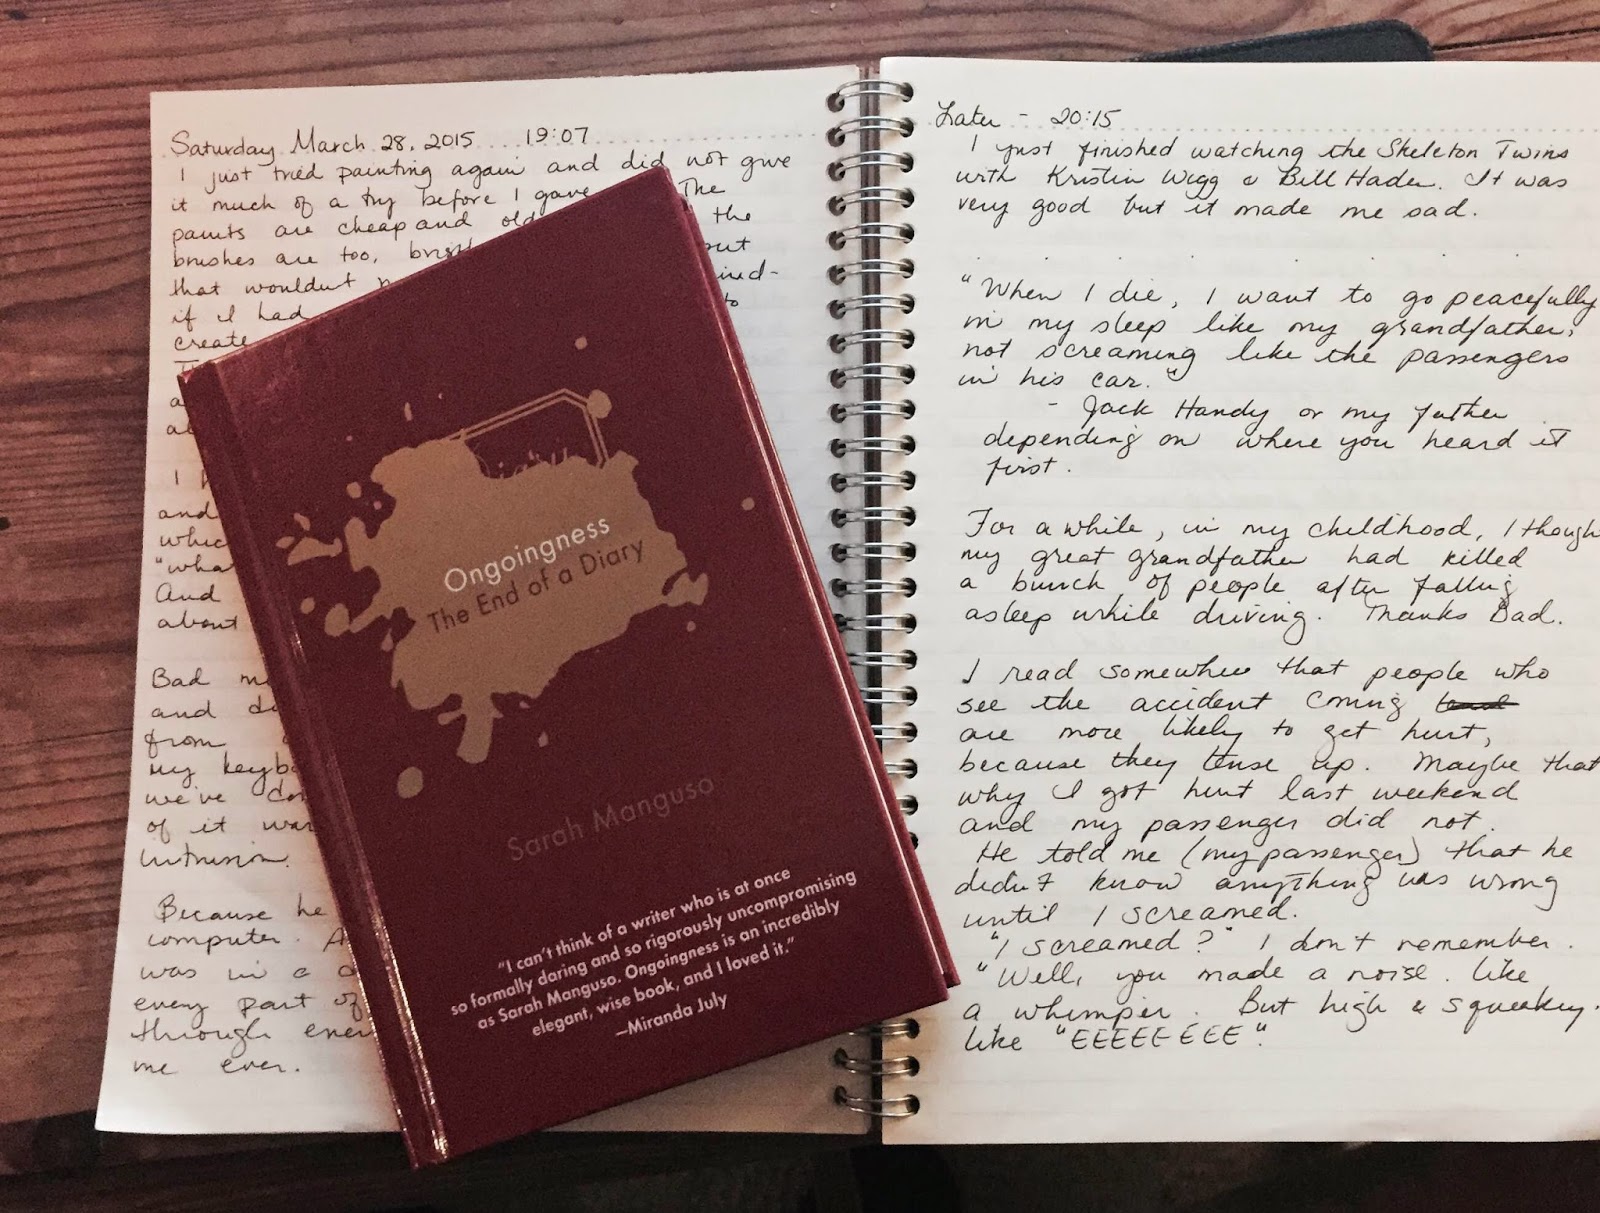 Saturday March 28, 2015 19:07
I just tried painting again and did not give
it much of a try before I gave The
paints are cheap and old the
brushes are too, but
that wouldn't
if I had to
create
and
which
"wha
And
about
Bad
and
from
my keyb
we've
of it
intrusion.
Because he
computer.
was in a
every part of
through
me ever.
Later - 20:15
I just finished watching the Skeleton Twins
with Kristin Wigg & Bill Hader. It was
very good but it made me sad.
"When I die, I want to go peacefully
in my sleep like my grandfather,
not screaming like the passengers
in his car."
- Jack Handy or my father
depending on where you heard it
first.
For a while, in my childhood, I though
my great grandfather had killed
a bunch of people after falling
asleep while driving. Thanks Dad.
I read somewhere that people who
see the accident coming
are more likely to get hurt,
because they tense up. Maybe that
why I got hurt last weekend
and my passenger did not.
He told me (my passenger) that he
didn't know anything was wrong
until I screamed.
"I screamed?" I don't remember.
"Well, you made a noise. Like
a whimper. But high & squeaky.
like "EEEEEEEE".
Ongoingness
The End of a Diary
Sarah Manguso
"I can't think of a writer who is at once
so formally daring and so rigorously uncompromising
as Sarah Manguso. Ongoingness is an incredibly
elegant, wise book, and I loved it."
—Miranda July